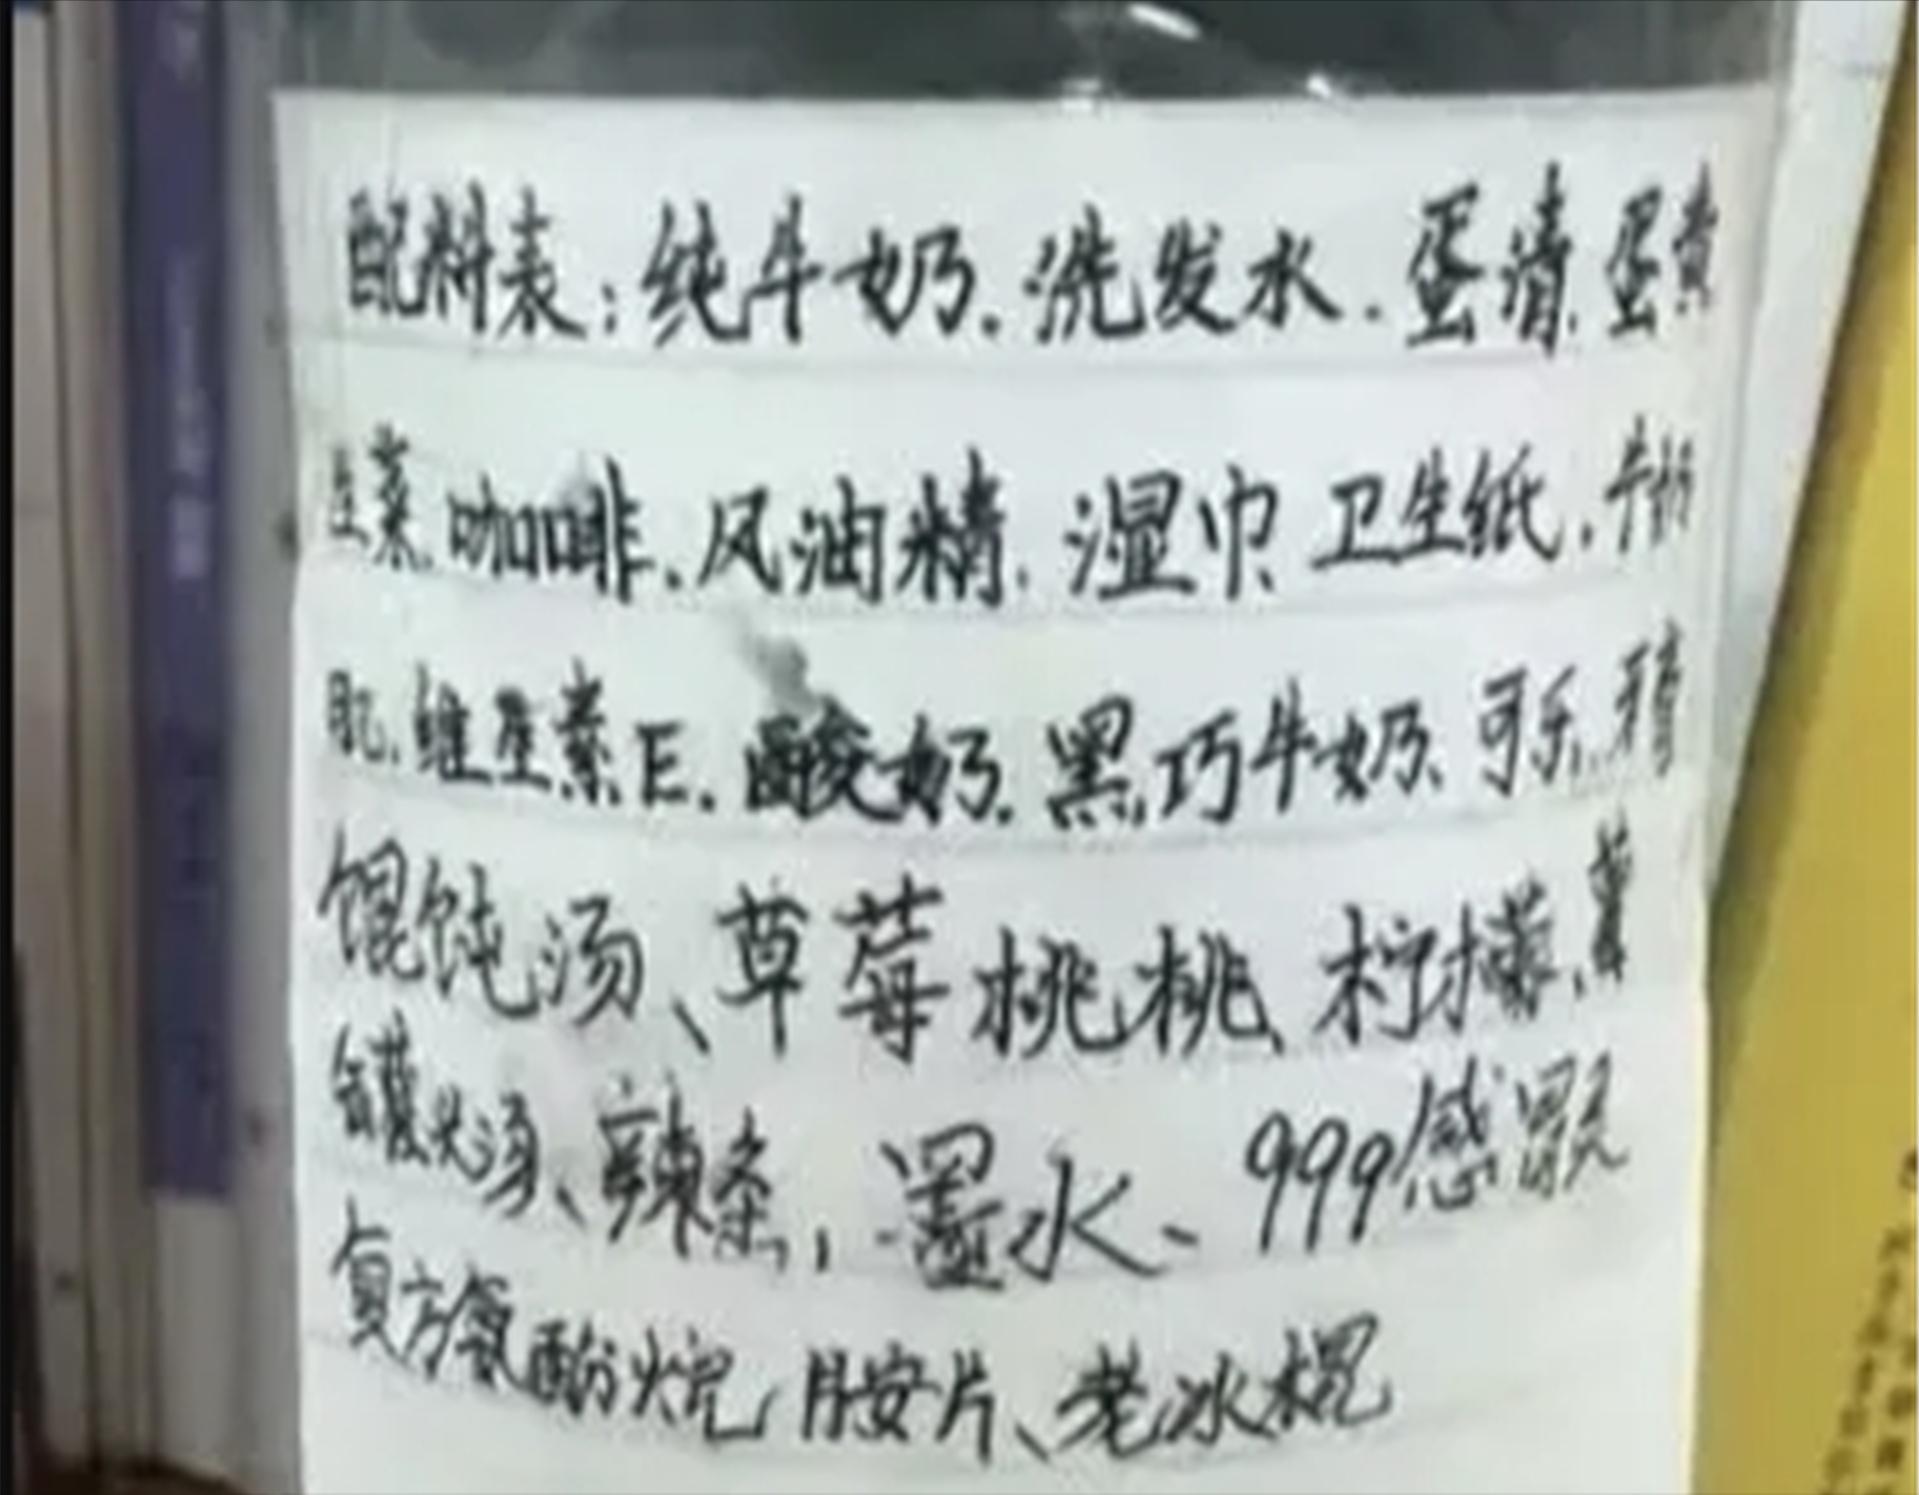 配料表：纯牛奶.洗发水.蛋清.蛋黄
生菜.咖啡.风油精.湿巾 卫生纸.牛奶
肌.维生素E.酸奶.黑巧牛奶.可乐.牙膏
馄饨汤、草莓桃桃、柠檬.
汤、辣条，墨水、999感冒灵
复方氨酚烷胺片、老冰棍